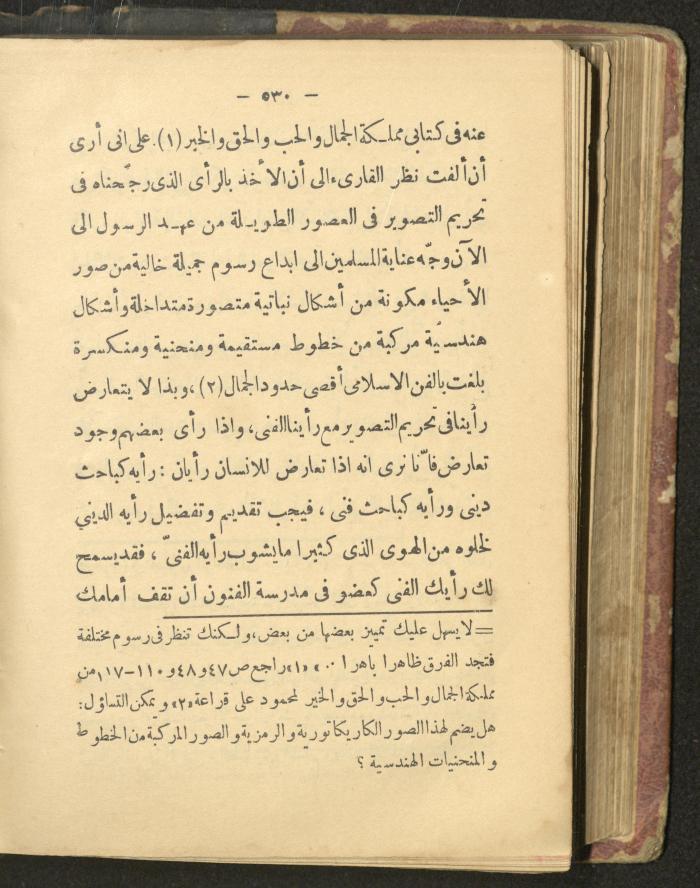 — ٥٣٠ —
عنه فى كتابى مملكة الجمال والحب والحق والخير (١). على انى أرى
أن ألفت نظر القارىء الى أن الأخذ بالرأى الذى رجّحناه فى
تحريم التصوير فى العصور الطويلة من عهد الرسول الى
الآن وجّه عناية المسلمين الى ابداع رسوم جميلة خالية من صور
الأحياء مكونة من أشكال نباتية متصورة متداخلة وأشكال
هندسيّة مركبة من خطوط مستقيمة ومنحنية ومنكسرة
بلغت بالفن الاسلامى أقصى حدود الجمال (٢) ، وبذا لا يتعارض
رأينا فى تحريم التصوير مع رأينا الفنى ، واذا رأى بعضهم وجود
تعارض فانّا نرى انه اذا تعارض للانسان رأيان : رأيه كباحث
دينى ورأيه كباحث فنى ، فيجب تقديم وتفضيل رأيه الديني
لخلوه من الهوى الذى كثيرا ما يشوب رأيه الفنىّ ، فقد يسمح
لك رأيك الفنى كعضو فى مدرسة الفنون أن تقف أمامك
= لا يسهل عليك تمييز بعضها من بعض ، ولكنك تنظر فى رسوم مختلفة
فتجد الفرق ظاهرا باهرا ٠٠ » «١» راجع ص ٤٧ و ٤٨ و ١١٠-١١٧ من
مملكة الجمال والحب والحق والخير لمحمود على قراعة «٢» ويمكن التساؤل :
هل يضم لهذا الصور الكاريكاتورية والرمزية والصور المركبة من الخطوط
والمنحنيات الهندسية ؟